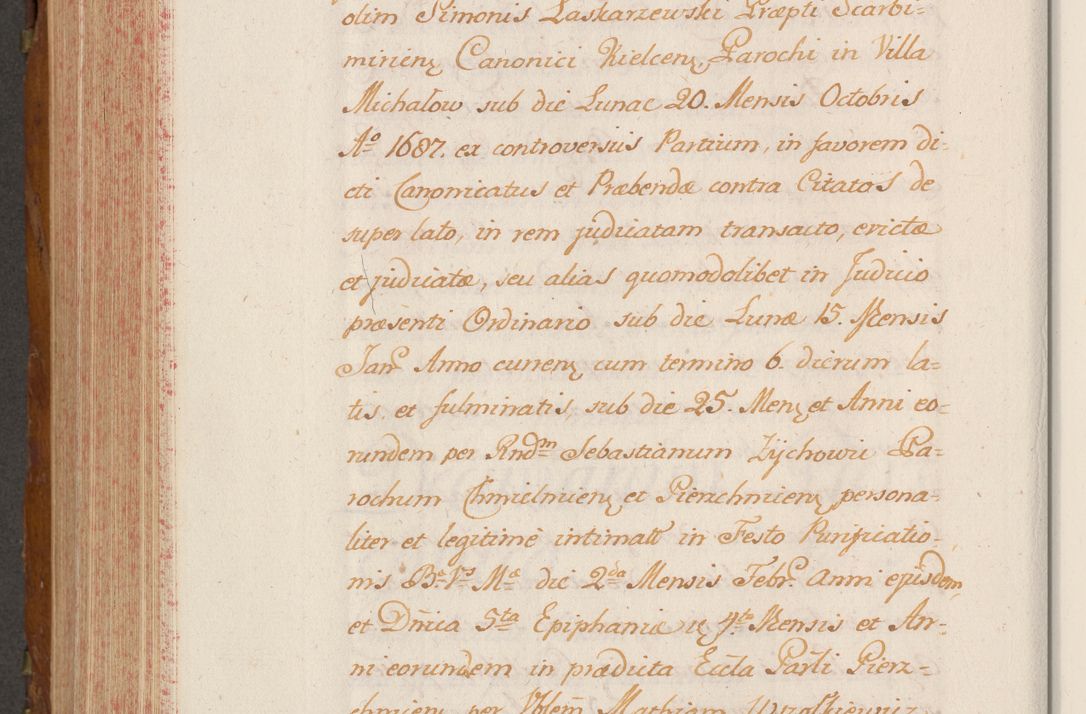 olim Simonis Laskarzewski Præpti Scarbi-
mirien, Canonici Kielcen, Parochi in Villa
Michałow sub die Lunae 20. Mensis Octobris
Aº 1687. ex controversiis Partium, in favorem di-
cti Canonicatus et Præbendæ contra Citatos de
super lato, in rem judicatam transacto, evictæ
et judicatæ, seu alias quomodolibet in Judicio
præsenti Ordinario sub die Lunæ 15. Mensis
Janr̃ Anno curren, cum termino 6. dierum la-
tis et fulminatis, sub die 25. Men, et Anni eo-
rundem per Rndm Sebastianum Zychowic Pa-
rochum Chmielnien, et Pierzchnien, persona-
liter et legitimè intimatt in Festo Purificatio-
nis Bæ Vs Mæ die 2da Mensis Febr. Anni ejusdem,
et Dñica 5ta Epiphaniæ 4ta Mensis et An-
ni eorundem in prædicta Eccla Parli Pierz-
chnien, per Vblem Mathiam